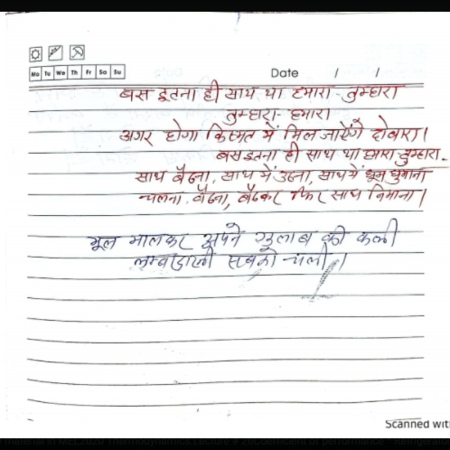 Mo Tu We Th Fr Sa Su
Date / /
बस इतना ही साथ था हमारा-तुम्हारा
तुम्हारा-हमारा।
अगर होगा किस्मत में मिल जाएंगे दोबारा।
बस इतना ही साथ था हमारा-तुम्हारा-
साथ बैठना, साथ में उठना, साथ में घूमना
चलना बैठना, बैठकर फिर साथ निभाना।
भूल भालकर अपने गुलाब की कली
सबको चली।
Scanned wit